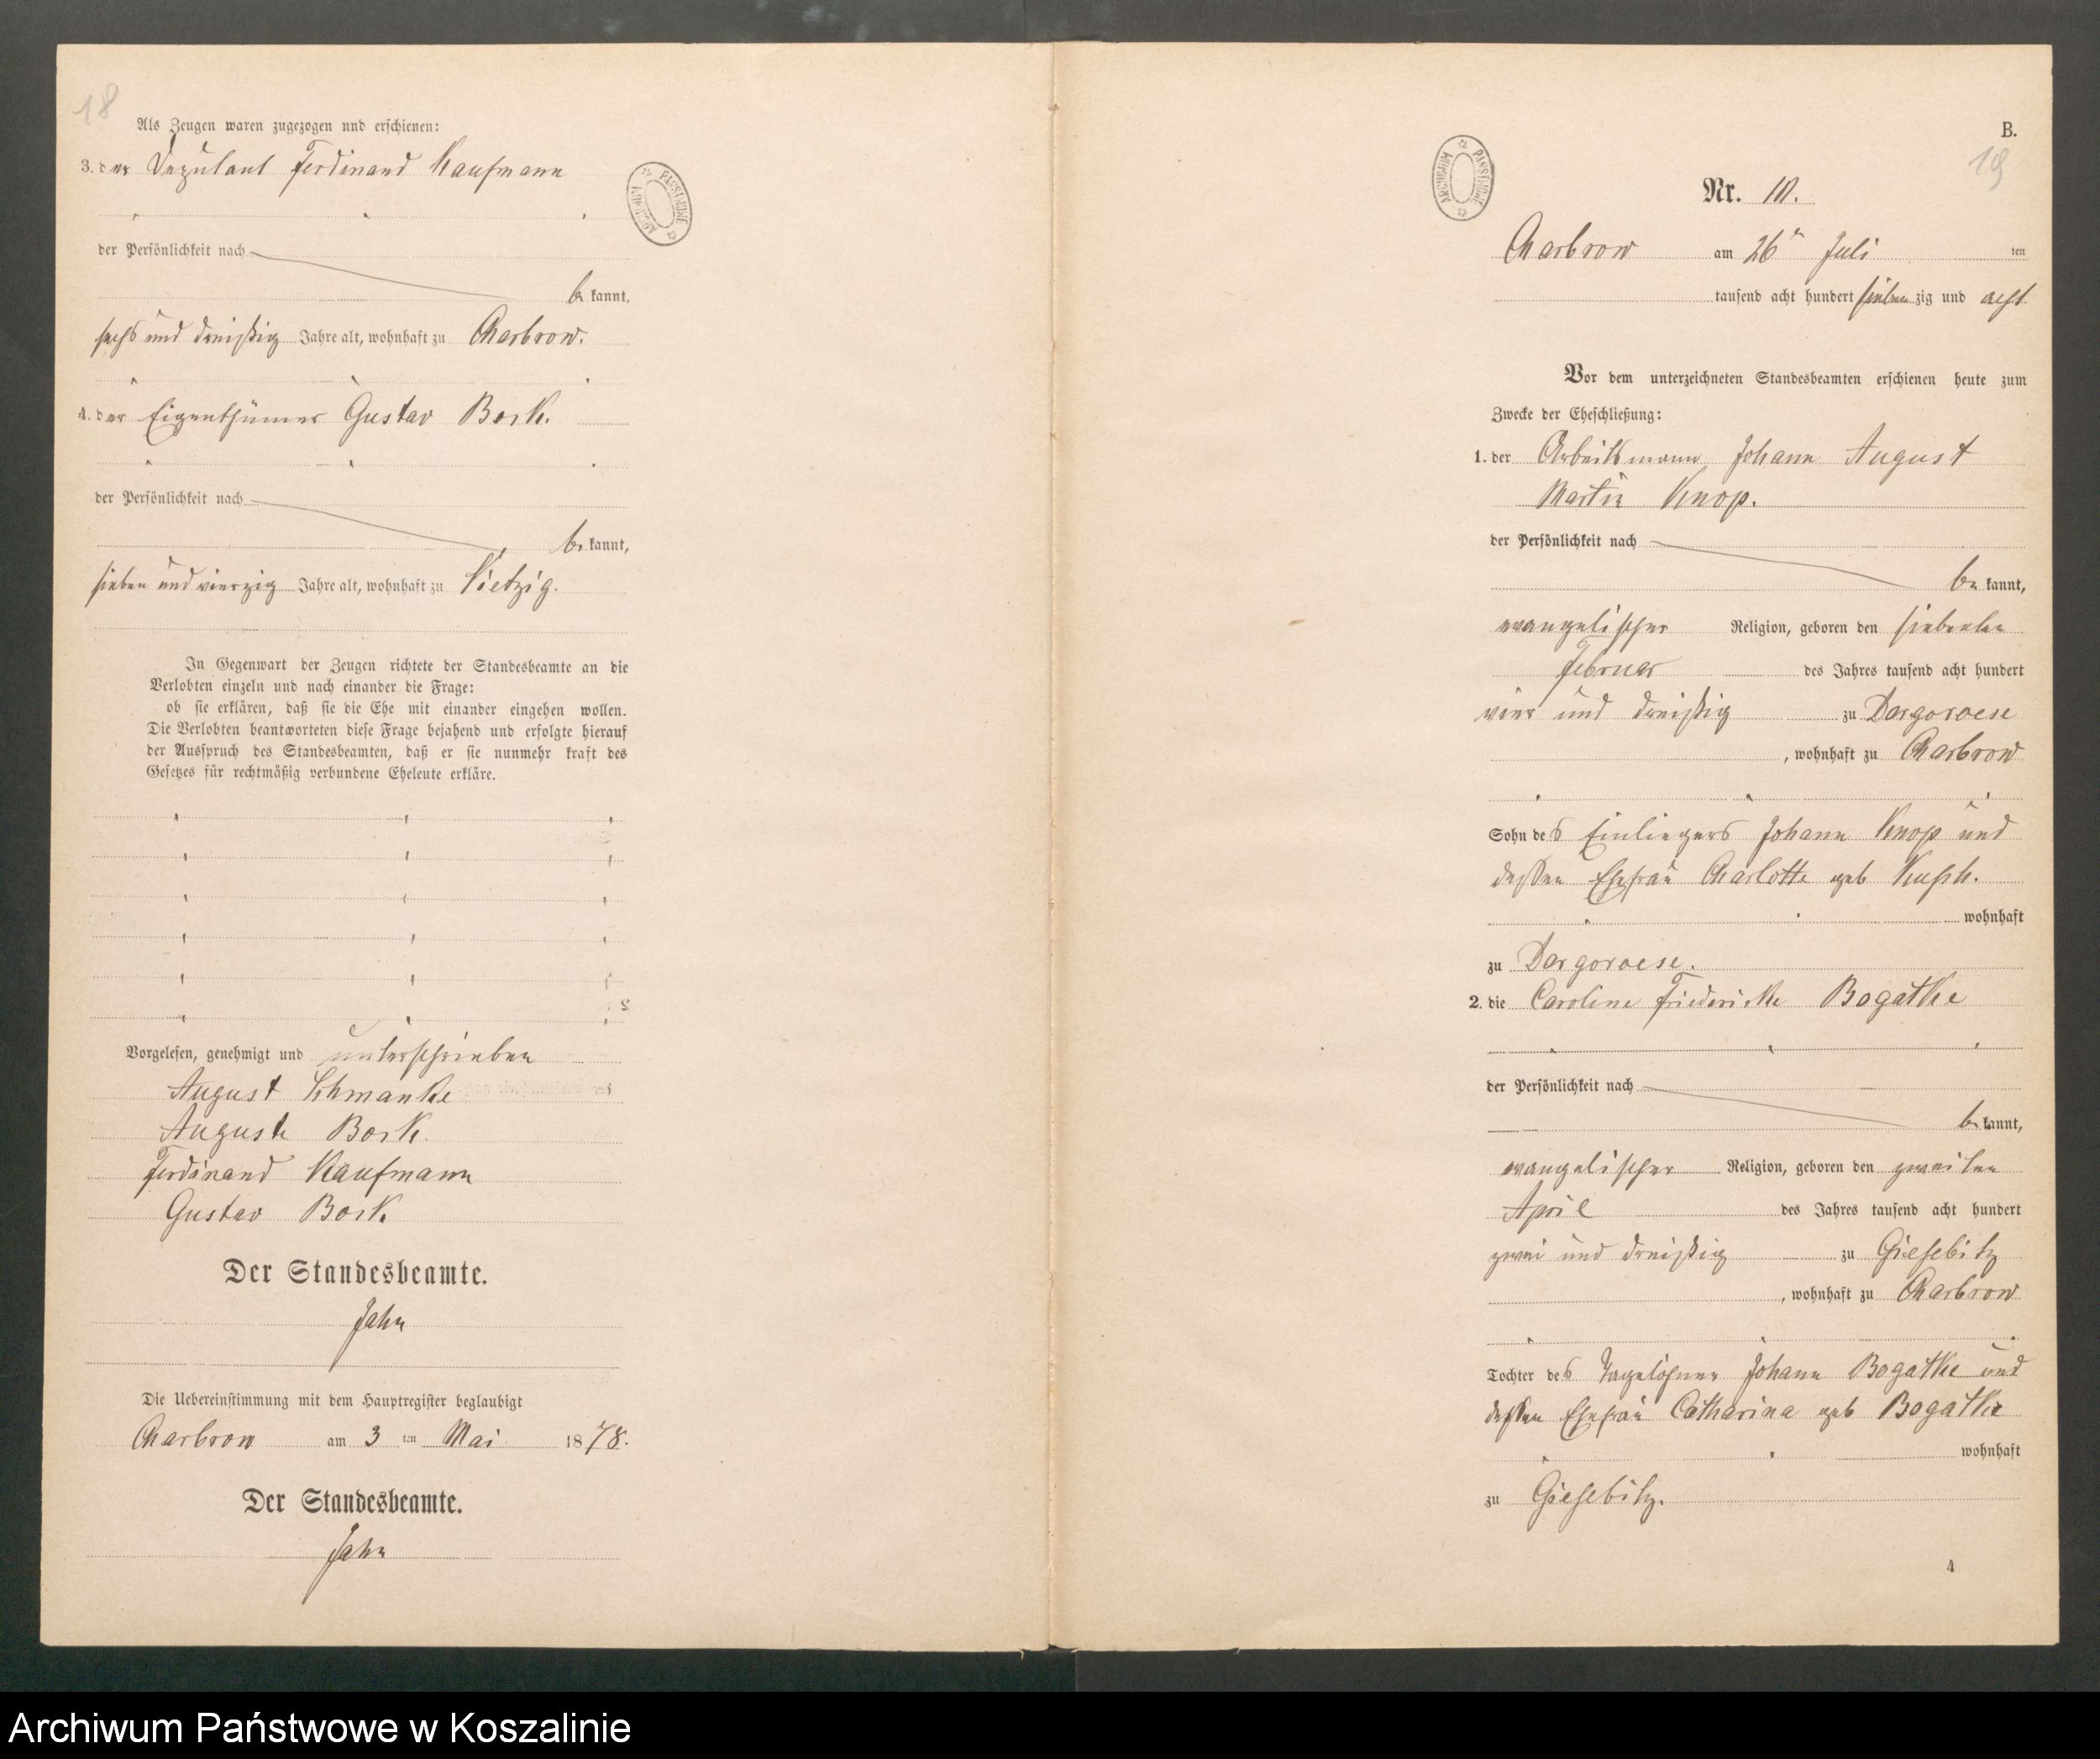 18
Als Zeugen waren zugezogen und erschienen:
3. der Deputant Ferdinand Kaufmann
der Persönlichkeit nach
be kannt,
sechs und dreißig Jahre alt, wohnhaft zu Charbrow.
4. der Eigenthümer Gustav Bork.
der Persönlichkeit nach
be kannt,
sieben und vierzig Jahre alt, wohnhaft zu Vietzig.
In Gegenwart der Zeugen richtete der Standesbeamte an die
Verlobten einzeln und nach einander die Frage:
ob sie erklären, daß sie die Ehe mit einander eingehen wollen.
Die Verlobten beantworteten diese Frage bejahend und erfolgte hierauf
der Ausspruch des Standesbeamten, daß er sie nunmehr kraft des
Gesetzes für rechtmäßig verbundene Eheleute erkläre.
Vorgelesen, genehmigt und unterschrieben
August Schmanke
Auguste Bork.
Ferdinand Kaufmann
Gustav Bork
Der Standesbeamte.
Jahn
Die Uebereinstimmung mit dem Hauptregister beglaubigt
Charbrow am 3 ten Mai 1878.
Der Standesbeamte.
Jahn
ARCHIWUM PAŃSTWOWE
ARCHIWUM PAŃSTWOWE
B.
19
Nr. 10.
Charbrow am 26ten Juli ten
tausend acht hundert sieben zig und acht
Vor dem unterzeichneten Standesbeamten erschienen heute zum
Zwecke der Eheschließung:
1. der Arbeitsmann Johann August
Martin Knop.
der Persönlichkeit nach
be kannt,
evangelischer Religion, geboren den siebenten
Februar des Jahres tausend acht hundert
vier und dreißig zu Dargoroese
, wohnhaft zu Charbrow
Sohn des Einliegers Johann Knop und
dessen Ehefrau Charlotte geb
wohnhaft
zu Dargoroese.
2. die Caroline Friederike Bogatke
der Persönlichkeit nach
be kannt,
evangelischer Religion, geboren den zweiten
April des Jahres tausend acht hundert
zwei und dreißig zu Giesebitz
, wohnhaft zu Charbrow
Tochter des Tagelöhner Johann Bogatke und
dessen Ehefrau Catharina geb Bogatke
wohnhaft
zu Giesebitz.
4
Archiwum Państwowe w Koszalinie